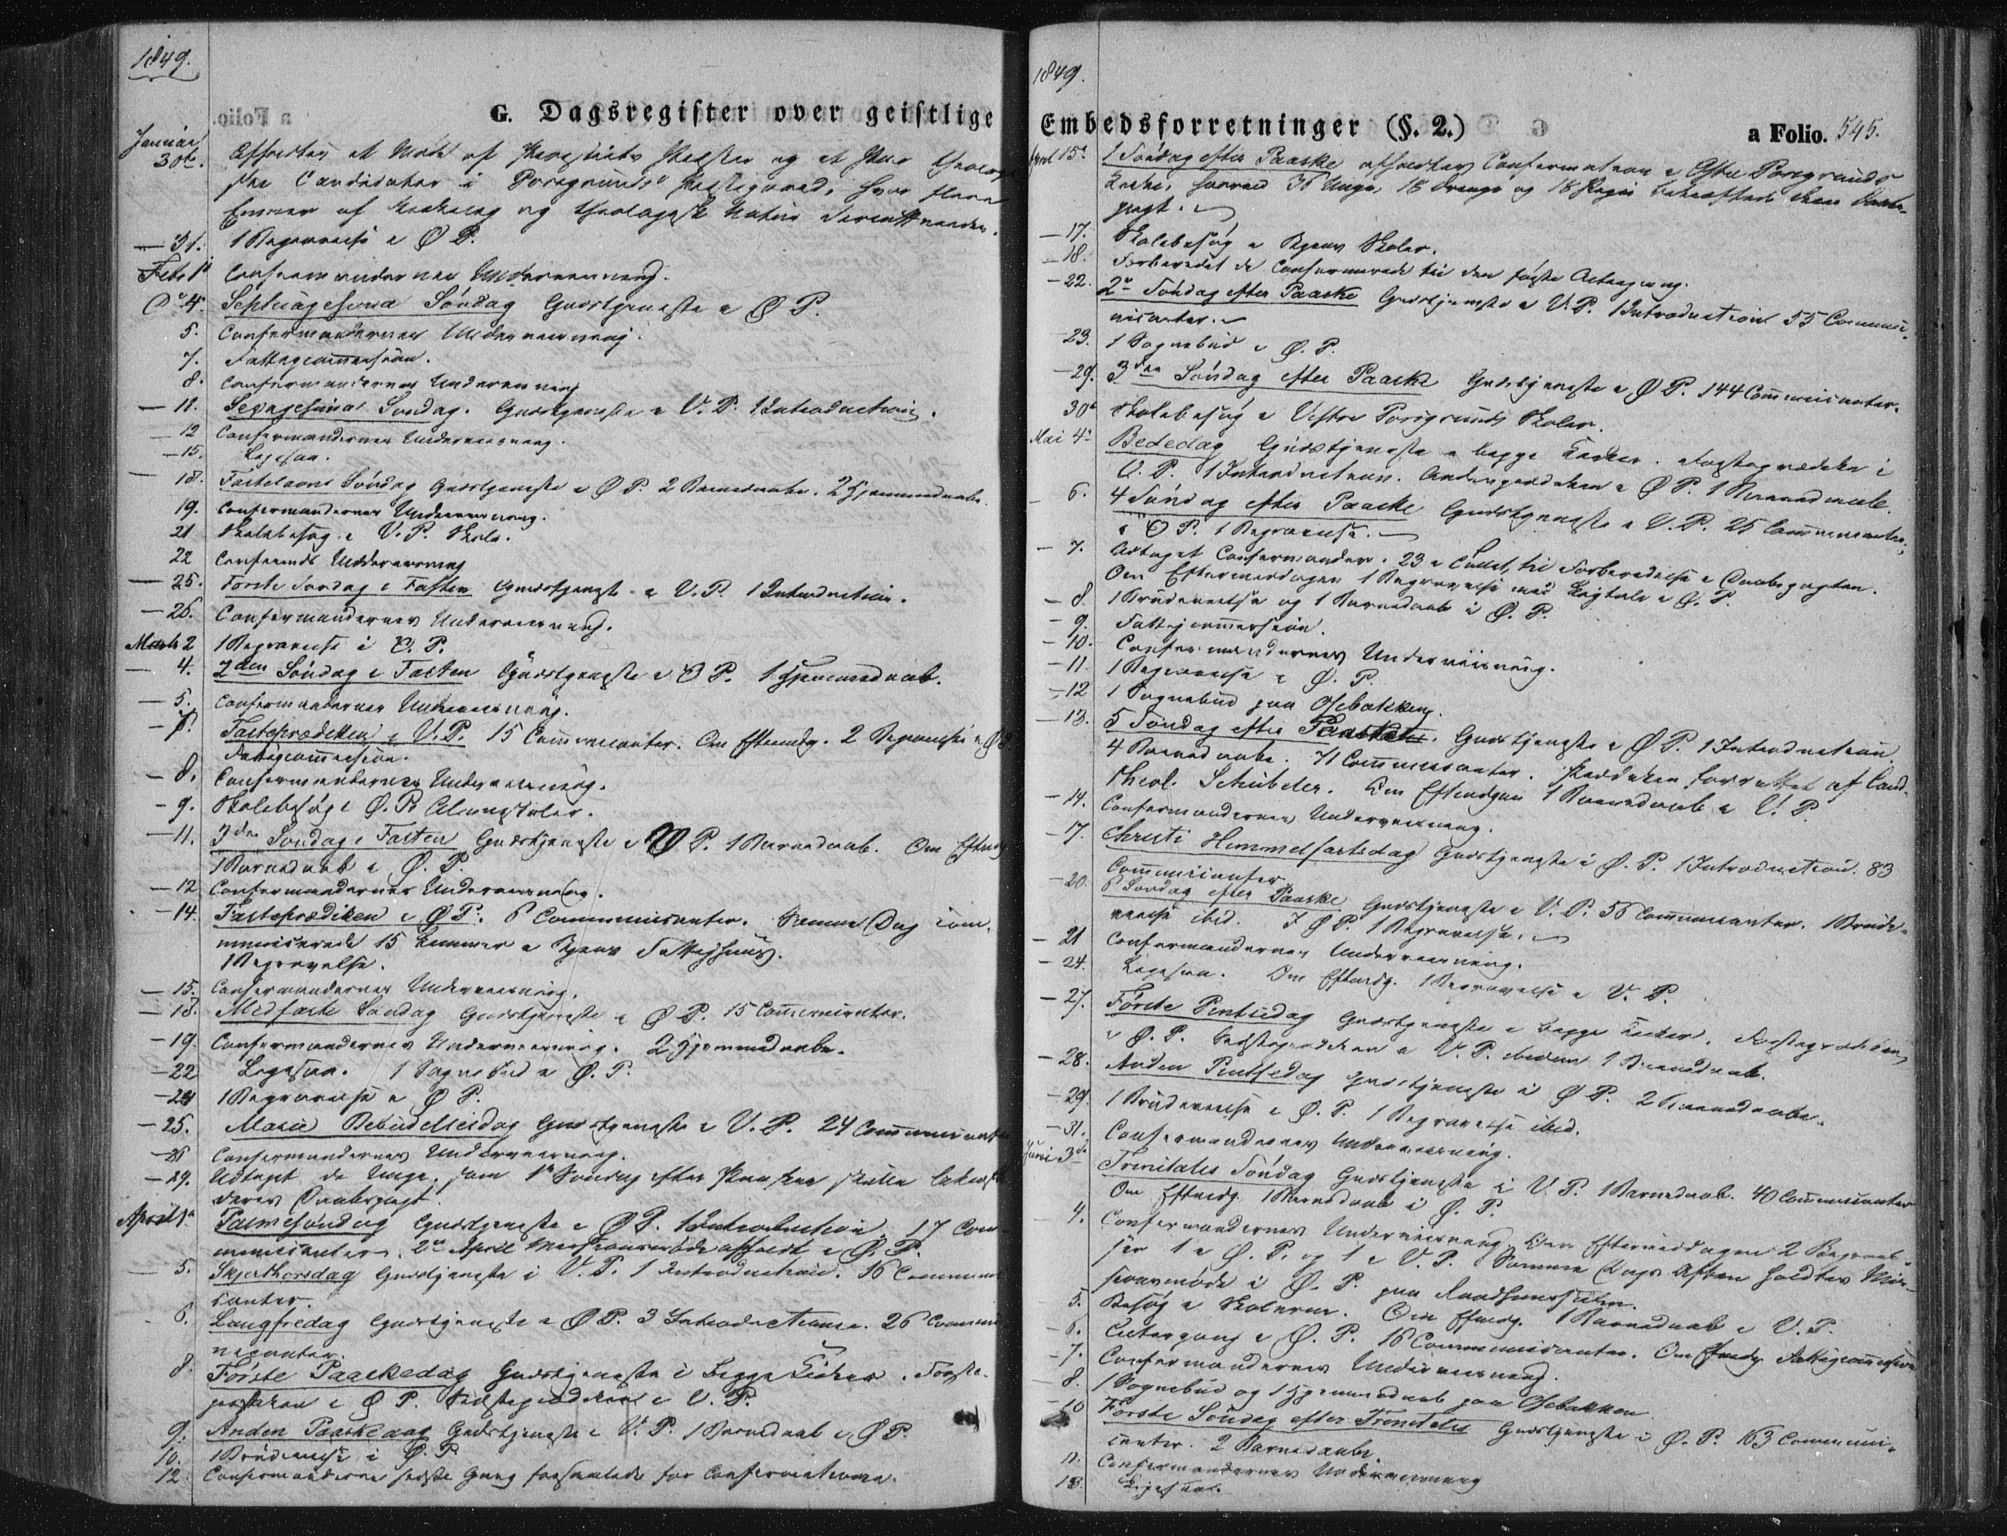 1849.
G. Dagsregister over geistlige
Januar
30te. Afholdtes et Møde af Provstiets Præster og et Par theologi-
ske Candidater i Porsgrunds Præstegaard, hvor flere
Emner af og theologisk Natur
— 31. 1 Begravelse i Ø. P.
Feb. 1 Confirmandernes Underviisning.
Do 4. Septuagesima Søndag Gudstjeneste i Ø. P.
5. Confirmandernes Underviisning.
7. Fattigcommission.
8. Confirmandernes Underviisning
— 11. Sexagesima Søndag. Gudstjeneste i V. P. 1 Introduction.
— 12 Confirmandernes Underviisning.
— 15.
— 18. Fastelavns Søndag Gudstjeneste i Ø P. 2 Barnedaabe. 2 Hjemmedaabe.
19. Confirmandernes Underviisning.
21 Skolebesøg i V. P. Skole.
22 Confirmands Underviisning
— 25. Første Søndag i Fasten Gudstjeneste i V. P. 1 Introduction.
— 26. Confirmandernes Underviisning.
Marts 2 1 Begravelse i Ø. P.
— 4. 2den Søndag i Fasten Gudstjeneste i Ø P. 1 Hjemmedaab.
— 5. Confirmandernes Underviisning.
Fasteprædiken i V. P. 15 Communicanter. Om Eftermdg. 2 Begravelser i Ø P
Fattigcommission.
— 8. Confirmandernes Underviisning.
— 9. Skolebesøg i Ø. P.
— 11. 3die Søndag i Fasten Gudstjeneste i V P. 1 Barnedaab. Om Eftmdg
1 Barnedaab i Ø. P.
— 12 Confirmandernes Underviisning.
— 14. Fasteprædiken i Ø P. 6 Communicanter. Samme Dag com-
municerede 15 Lemmer i Byens Fattighuus.
1 Begravelse.
— 15. Confirmandernes Underviisning.
— 18. Midfaste Søndag Gudstjeneste i Ø P. 15 Communicanter.
— 19. Confirmandernes Underviisning. 2 Hjemmedaabe.
— 22 1 Sognebud i Ø. P.
— 24 1 Begravelse i Ø P.
— 25. Mariæ Bebudelsesdag Gudstjeneste i V. P. 24 Communicanter
— 26 Confirmandernes Underviisning.
— 29. Udtaget de Unge, som 1ste Søndag efter Paaske skulle bekræfte
deres Daabspagt.
April 1. Palmesøndag Gudstjeneste i Ø P. 1 Introduction. 17 Com-
municanter. 2den April Missionsmøde afholdt i Ø. P.
— 5. Skjærthorsdag Gudstjeneste i V. P. 1 Introduction. 16 Communi-
canter.
— 6. Langfredag Gudstjeneste i Ø P. 3 Introductioner. 26 Commu-
nicanter.
8. Første Paaskedag Gudstjeneste i begge Kirker. Første-
prædiken i Ø P. Sidsteprædiken i V. P.
9. Anden Paaskedag Gudstjeneste i V. P. 1 Barnedaab i Ø P.
10. 1 Brudevielse i Ø. P.
12. Confirmanderne sidste Gang forsamlede før Confirmationen.
1849.
Embedsforretninger (§. 2.) a Folio. 545.
April 15. 1 Søndag efter Paaske afholdtes Confirmation i Østre Porsgrunds
Kirke, hvorved 36 Unge, 18 Drenge og 18 Piger bekræftede deres Daabs-
pagt.
— 17. Skolebesøg i Byens Skoler.
— 18. Forberedet de Confirmerede til den første Altergang.
— 22. 2den Søndag efter Paaske Gudstjeneste i V. P. 1 Introduction 55 Commu-
nicanter.
23. 1 Sognebud i Ø. P.
— 29. 3die Søndag efter Paaske Gudstjeneste i Ø P. 144 Communicanter.
30 Skolebesøg i Vestre Porsgrunds Skoler.
Mai 4. Bededag Gudstjeneste i begge Kirker. Førsteprædiken i
V. P. 1 Introduction. i Ø P. 1 Barnedaab.
— 6. 4 Søndag efter Paaske Gudstjeneste i V. P. 25 Communicanter,
i Ø P. 1 Begravelse.
— 7. Antaget Confirmander, 23 i Tallet, til Forberedelse i Daabspagten.
Om Eftermiddagen 1 Begravelse med Ligtale i Ø. P.
— 8. 1 Brudevielse og 1 Barnedaab i Ø. P.
— 9. Fattigcommission.
— 10. Confirmandernes Underviisning.
— 11. 1 Begravelse i Ø. P.
— 12 1 Sognebud paa Osebakken.
— 13. 5 Søndag efter Paaske. Gudstjeneste i Ø P. 1 Introduction
4 Barnedaabe. 71 Communicanter. Prædiken forrettet af Cand.
theol. Schübeler. Om Eftmdgen 1 Barnedaab i V. P.
— 14. Confirmandernes Underviisning.
— 17. Christi Himmelfartsdag Gudstjeneste i Ø. P. 1 Introduction. 83
Communicanter
— 20. 6 Søndag efter Paaske Gudstjeneste i V. P. 56 Communicanter. 1 Brude-
vielse ibid. I Ø P. 1 Begravelse.
— 21 Confirmandernes Underviisning.
— 24. Om Eftmdg. 1 Begravelse i V. P.
— 27. Første Pintsedag Gudstjeneste i begge Kirker. Førsteprædiken
i Ø. P. Sidsteprædiken i V. P. 1 Barnedaab.
— 28. Anden Pintsedag Gudstjeneste i Ø P. 2 Barnedaabe.
— 29. 1 Brudevielse i Ø. P. 1 Begravelse ibid.
— 31. Confirmandernes Underviisning.
Juni 3die Trinitatis Søndag Gudstjeneste i V. P. 1 Barnedaab. 40 Communicanter
Om Eftmdg. 1 Barnedaab i Ø. P.
4. Confirmandernes Underviisning. Om Eftermiddagen 2 Begravel-
ser 1 i Ø. P. og 1 i V. P. Samme Dags Aften holdtes Mis-
sionsmøde i Ø. P. paa Raadhuussalen.
5. Besøg i Skolerne. Om Eftmdg. 1 Barnedaab i V. P.
— 6. Altergang i Ø. P. 16 Communicanter. Om Eftmdg. Fattigcommission
— 7. Confirmandernes Underviisning.
— 8. 1 Sognebud og 1 Hjemmedaab paa Osebakken
— 10 Første Søndag efter Trinitatis Gudstjeneste i Ø. P. 163 Communi-
canter. 2 Barnedaabe.
11. Confirmandernes Underviisning
13.